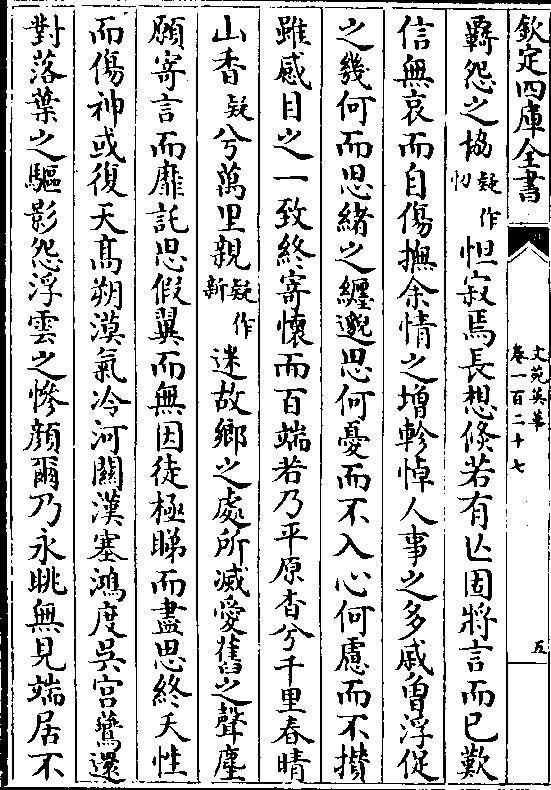 欽定四庫全書
文苑英華
卷一百二十七
五
羇怨之協疑作忉怛寂焉長想倐若有亾固將言而已歎
信無哀而自傷撫余情之增軫悼人事之多戚曾浮促
之幾何而思緒之纏邈思何憂而不入心何慮而不攅
雖感目之一致終寄懷而百端若乃平原杳兮千里春晴
山香疑兮萬里親疑作新迷故鄉之處所滅愛舊之聲塵
願寄言而靡託思假翼而無因徒極睇而盡思終夭性
而傷神或復天髙朔漠氣冷河關漢塞鴻度吳宫鷰還
對落葉之驅影怨浮雲之慘顔爾乃永眺無見端居不